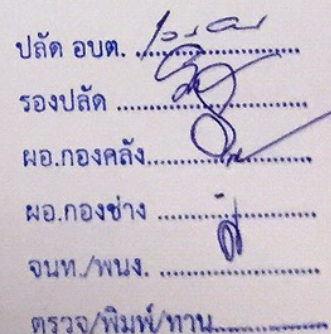 ปลัด อบต. ....................
รองปลัด ............................
ผอ.กองคลัง.........................
ผอ.กองช่าง .......................
จนท./พนง. .......................
ตรวจ/พิมพ์/ทาน..................